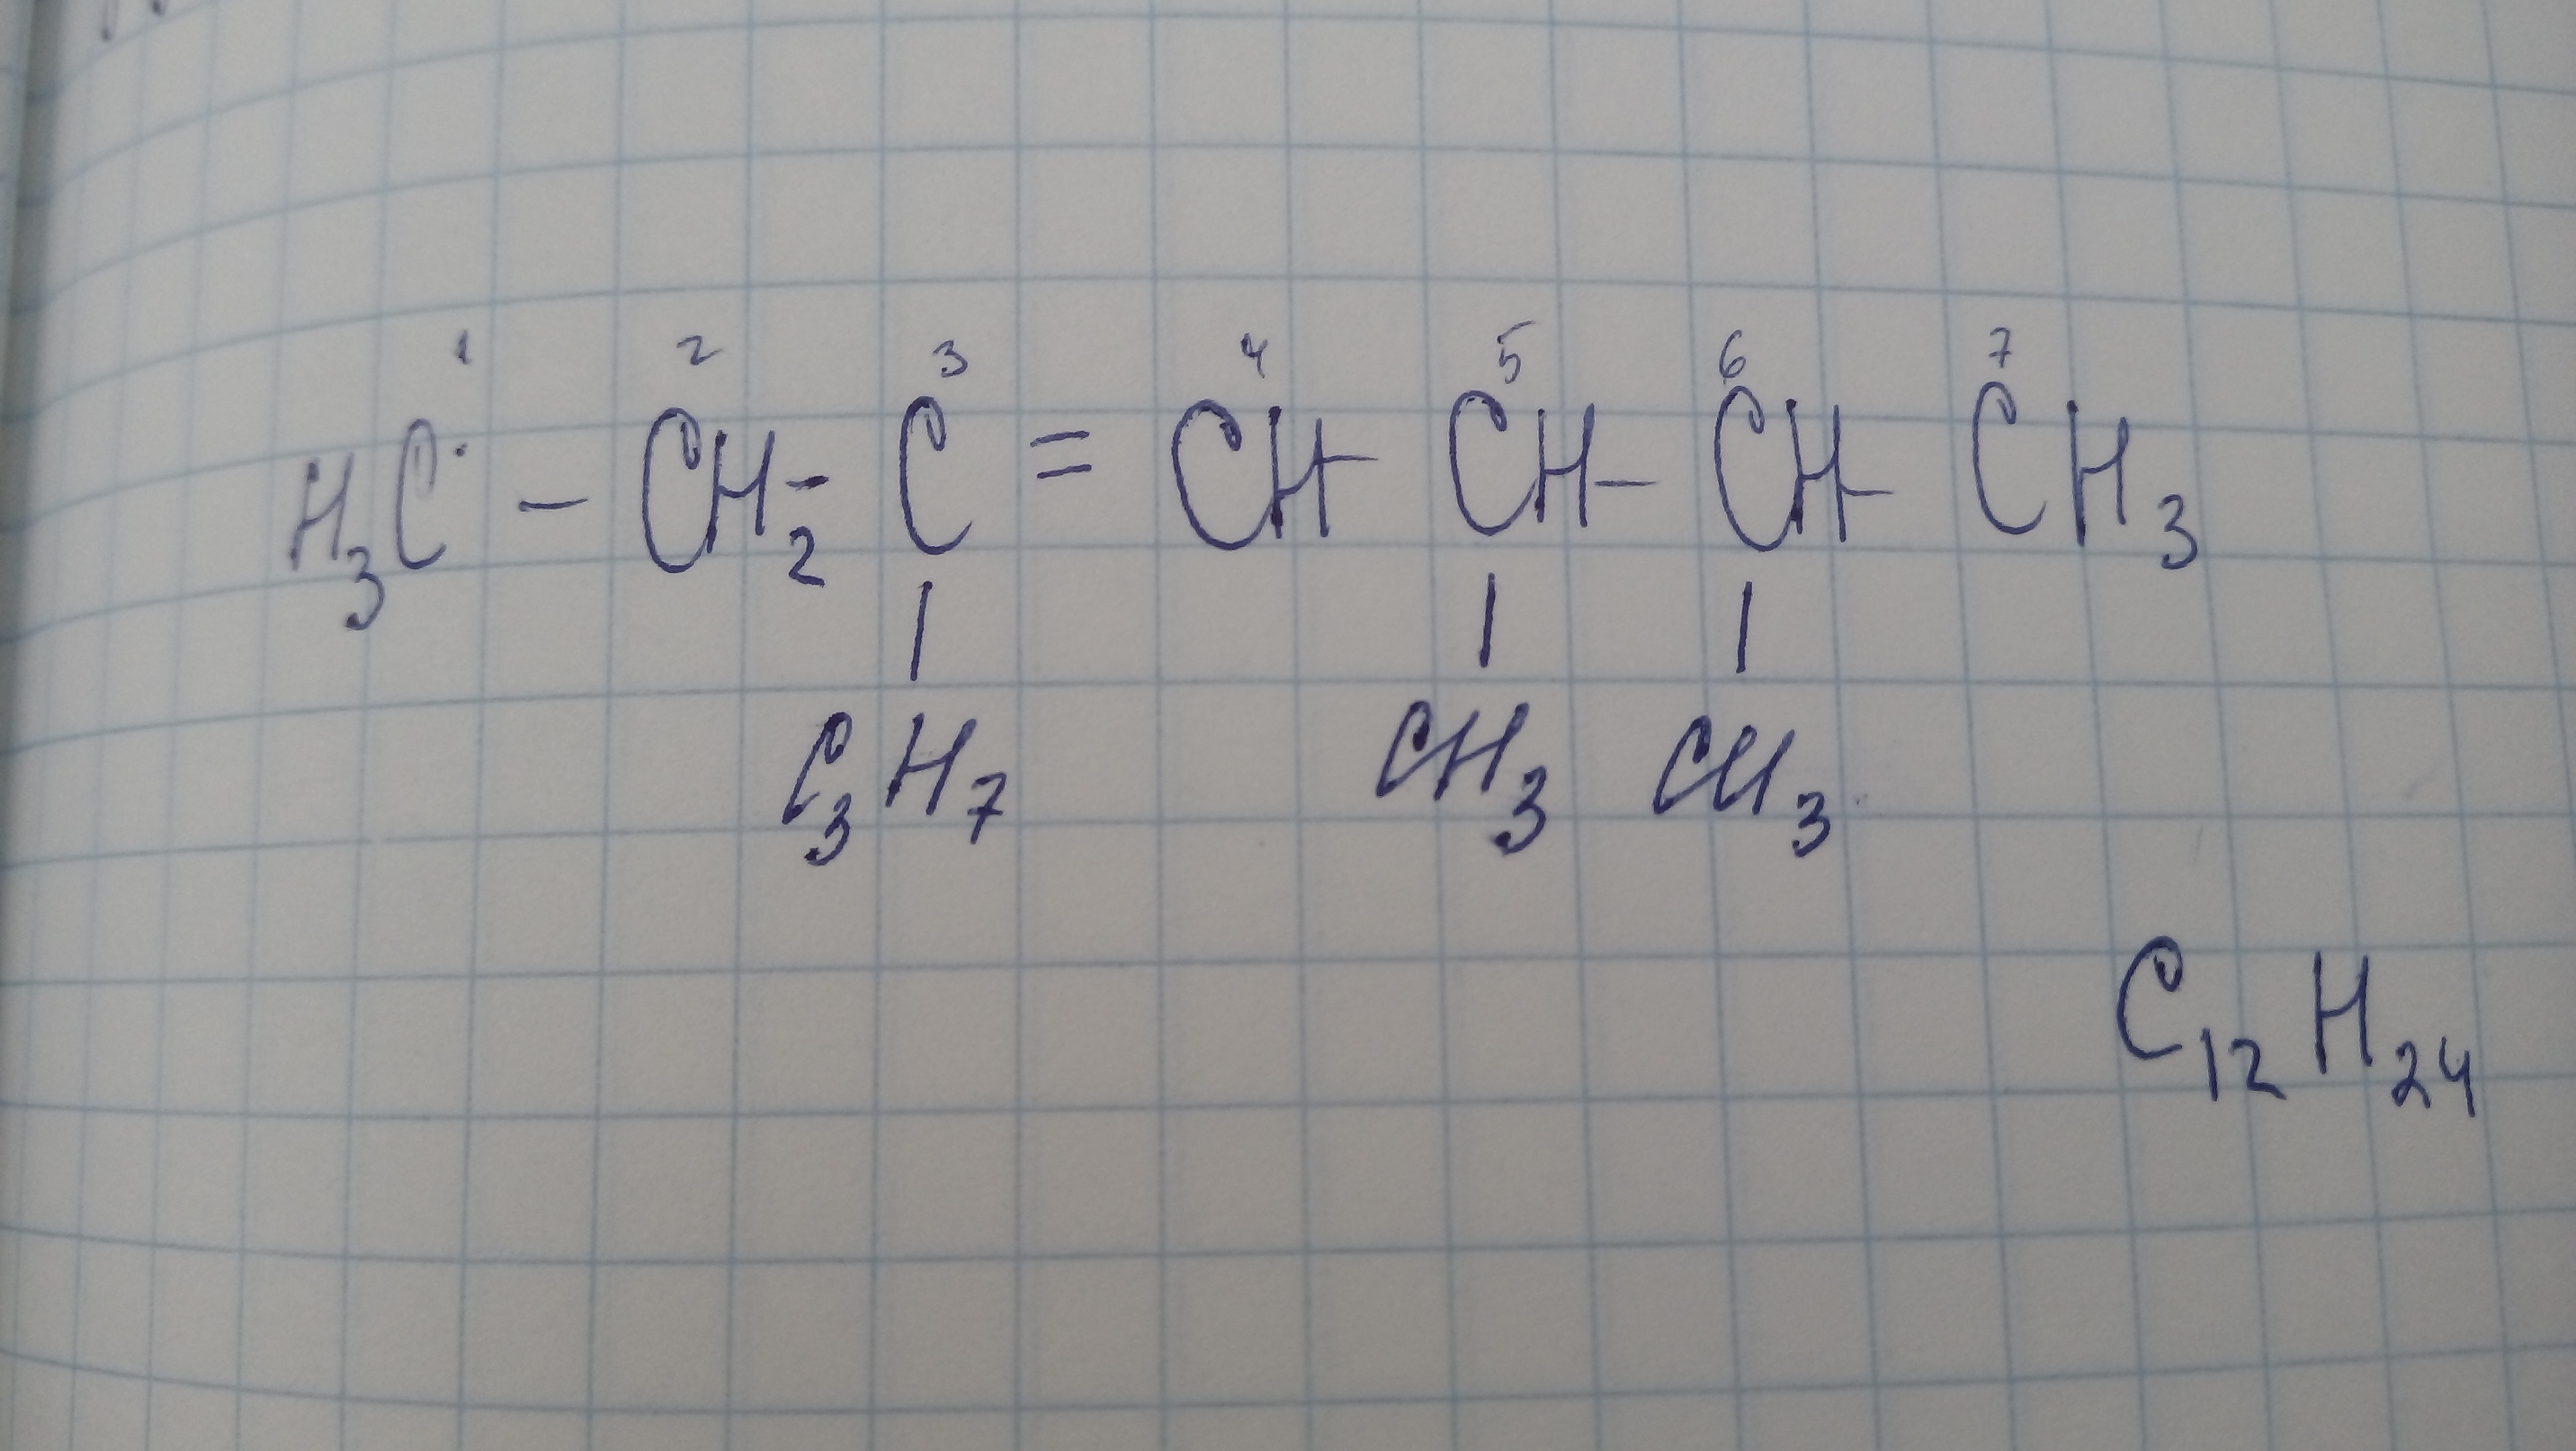 1 2 3 4 5 6 7
H₃C - CH₂ - C = CH - CH - CH - CH₃
| | |
C₃H₇ CH₃ CH₃
C₁₂H₂₄